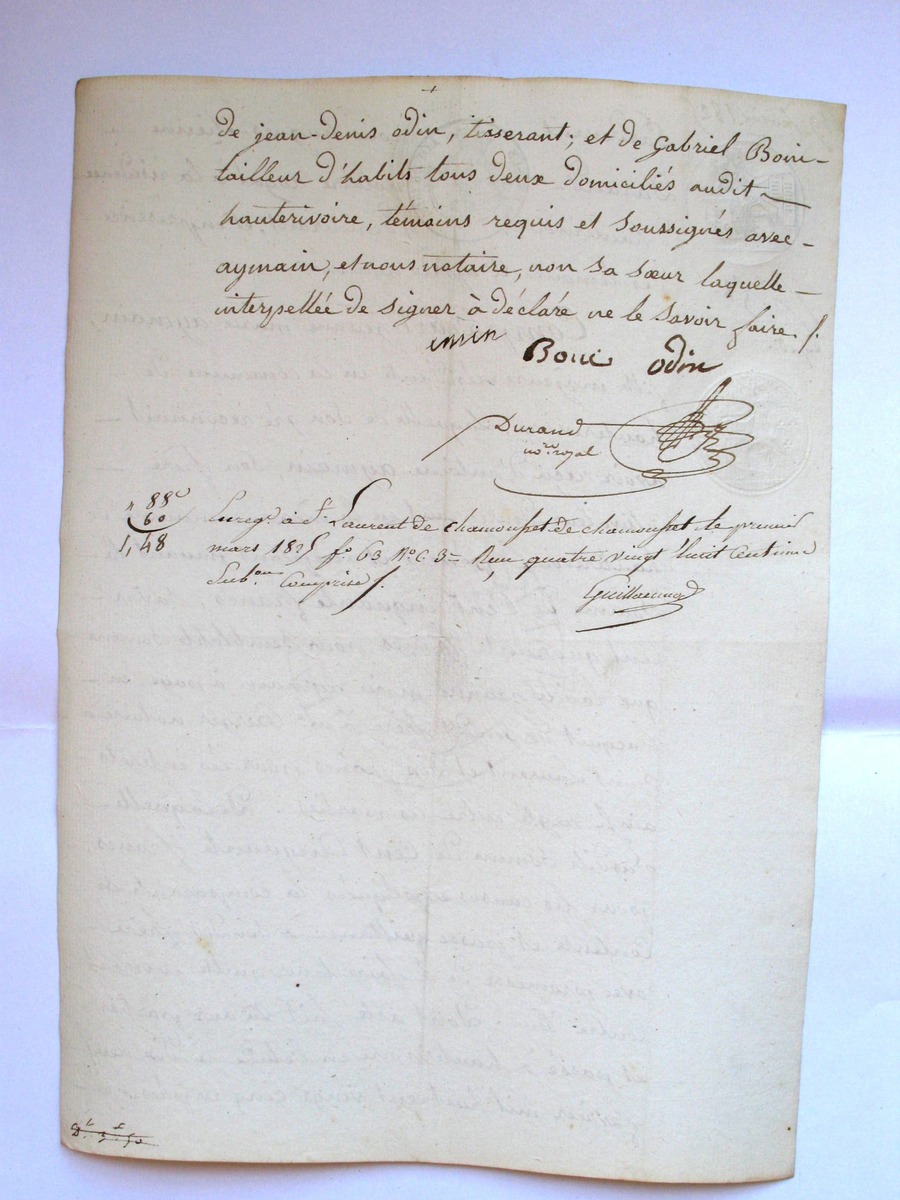 de jean-denis odin, tisserant; et de Gabriel Boui-
tailleur d'habits tous deux domiciliés audit
hauterivoire, témoins requis et soussignés avec-
aymain, et nous notaire, non sa sœur laquelle-
interpellée de signer à déclaré ne le savoir faire /.
Boui odin
Durand
no.re royal
" 88c
60
1,48
Enreg.é à St Laurent de chamousset de chamousset le premier
mars 1825 fo. 63 No. C. 3= Reçu quatre vingt huit centimes
Sub.on Comprise /.